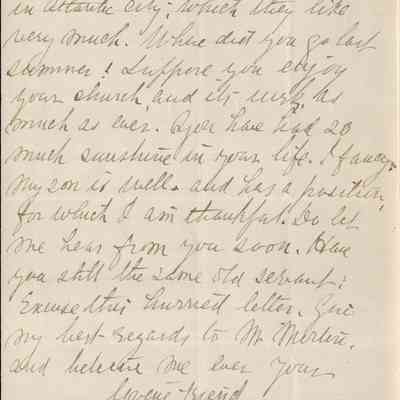 in Atlantic City; which they like
very much. Where did you go last
summer? I suppose you enjoy
your church, and its work, as
much as ever. You have had so
much sunshine in your life. I fancy.
My son is well. and has a position,
for which I am thankful. Do let
me hear from you soon. Have
you still the same old servant?
Excuse this hurried letter. Give
my best regards to Mr
and believe me ever your
loving friend